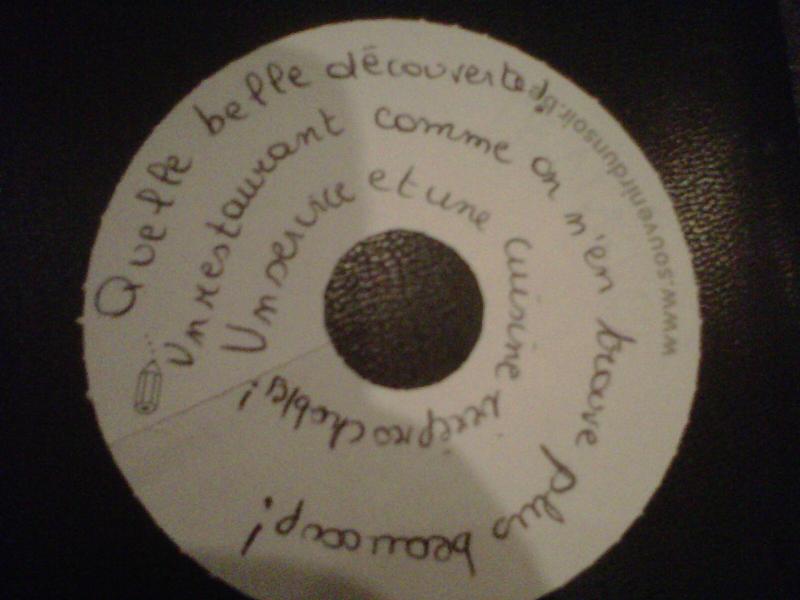 Quelle belle découverte,
Un restaurant comme on n'en trouve plus beaucoup!
Un service et une cuisine irréprochable!
www.souvenirdunsoir.be